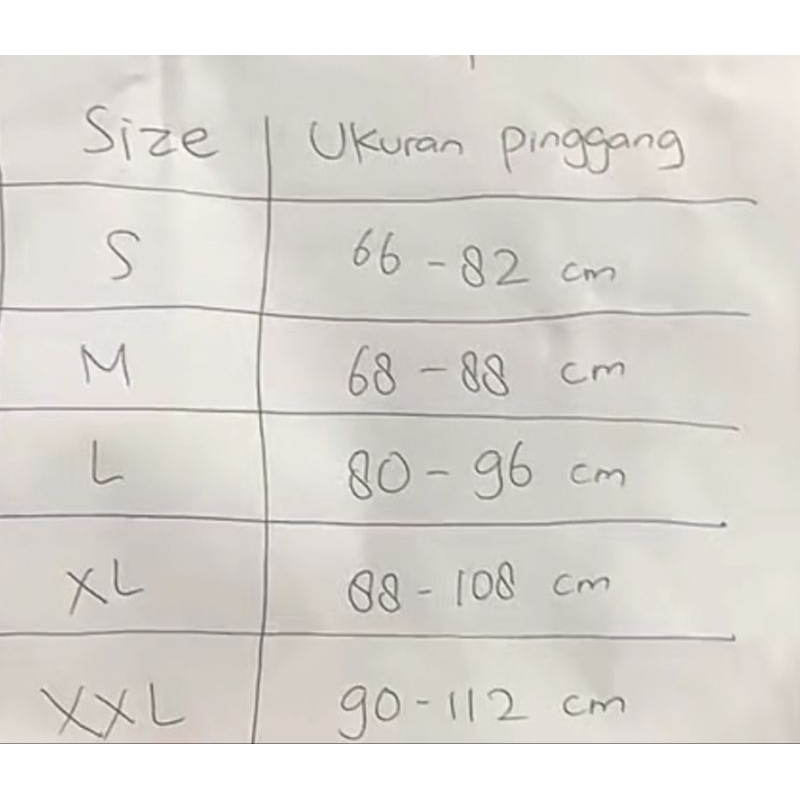 Size Ukuran pinggang
S 66 - 82 cm
M 68 - 88 cm
L 80 - 96 cm
XL 88 - 108 cm
XXL 90 - 112 cm